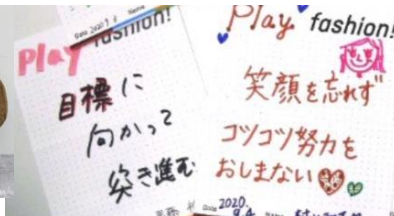 Play fashion!
Date 2020
目標に
向かって
突き進む
Play fashion!
笑顔を忘れず
コツコツ努力を
おしまない
2020.
9.4